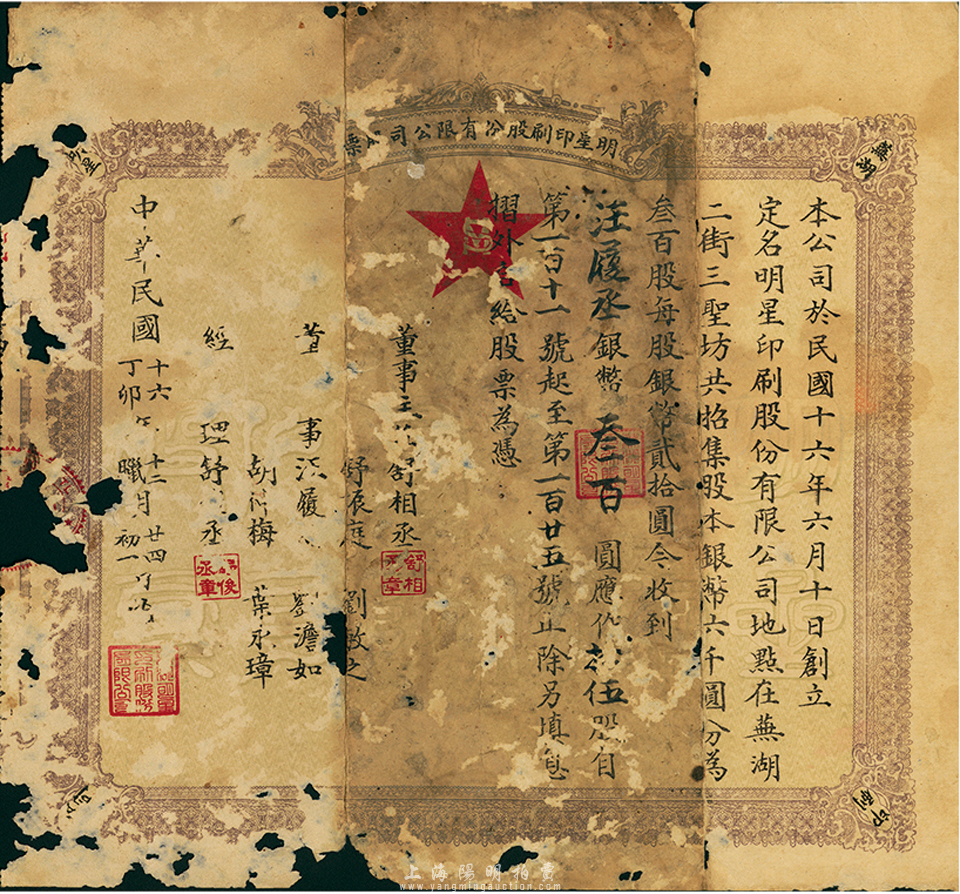 明星印刷股份有限公司 票
蕪湖
本公司於民國十六年六月十日創立
定名明星印刷股份有限公司地點在蕪湖
二街三聖坊共招集股本銀幣六千圓分為
叁百股每股銀幣貳拾圓今收到
汪履丞銀幣叁百圓應 伍股自
第一百十一號起至第一百廿五號止除另填息
摺外 給股票為憑
董事 舒相丞
舒 庭 劉 之
董事 履 劉澹如
胡 梅 葉永璋
經理舒 丞
中華民國十六年十二月廿四
丁卯 臘月初一
舒相 章
俊丞章
星
印刷
上海陽明拍賣
www.yangmingauction.com